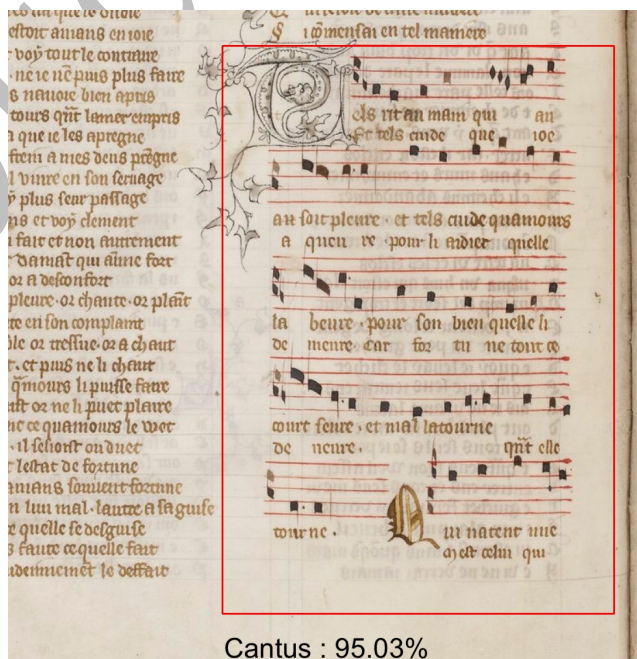 destoit amans en ioie
voÿ tout le contraire
ne ie nē puis plus faire
nauoie bien apris
tours qn̄t lamer empris
a que ie les apregne
viure en son seruage
plus seur passage
et voÿ clement
fait et non autrement
damast qui aime fort
or a desconfort
pleure · or chante · or plaīt
en son complaint
ole or tressue · or a chaut
· et puis ne li chaut
q̄mours li puisse faire
or ne li puet plaire
ce quamours le voet
· il seliont on duet
lestat de fortune
amans souuent fortune
lun mal · lautre a sa guise
e quelle se desguise
faute ce quelle fait
le deffait
i cōmensai en tel maniere
els rit au main qui an
Et tels cuide que ioe
au soir pleure · et tels cuide quamours
a quen re · pour li aidier quelle
la beure · pour son bien quelle li
de meure Car for tu ne tout ce
court seure · et mal latourne
de neure · qn̄t elle
tourne · ui natent mie
est celui qui
Cantus : 95.03%